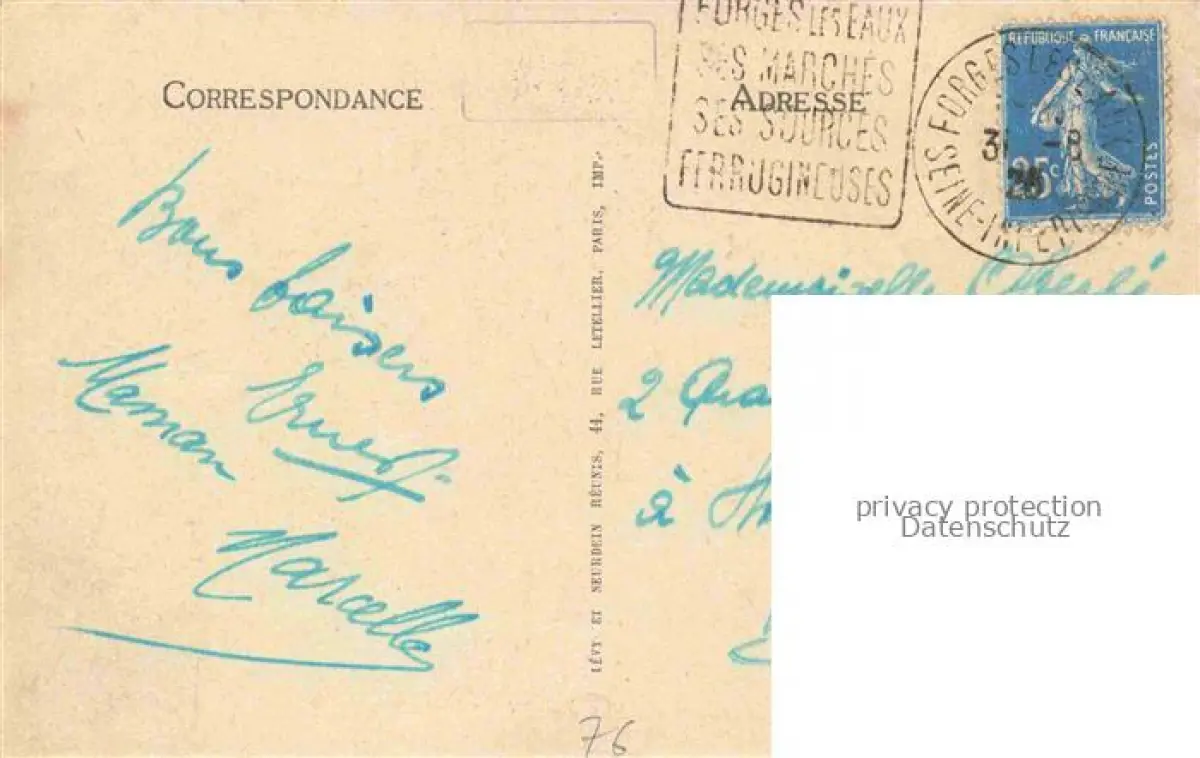 CORRESPONDANCE
Bons baisers
Ernest
Maman
Marcelle
LÉVY ET NEURDEIN RÉUNIS, 44, RUE LETELLIER, PARIS, IMP.
76
FORGES LES EAUX
SES MARCHÉS
SES SOURCES
FERRUGINEUSES
ADRESSE
RÉPUBLIQUE FRANÇAISE
25c
POSTES
FORGES LES
SEINE-INFERE
-8
26
Mademoiselle
2
à
privacy protection
Datenschutz